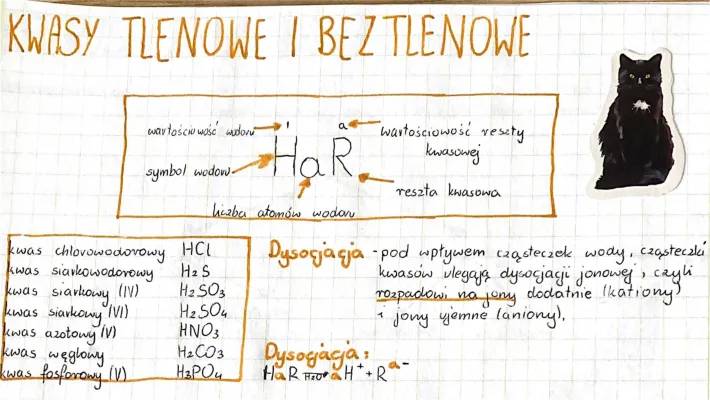 KWASY TLENOWE I BEZTLENOWE
wartościowość wodoru
I
a
wartościowość reszty
kwasowej
symbol wodoru
HaR
reszta kwasowa
liczba atomów wodoru
kwas chlorowodorowy HCl
kwas siarkowodorowy H₂S
kwas siarkowy (IV) H₂SO₃
kwas siarkowy (VI) H₂SO₄
kwas azotowy (V) HNO₃
kwas węglowy H₂CO₃
kwas fosforowy (V) H₃PO₄
Dysocjacja - pod wpływem cząsteczek wody, cząsteczki
kwasów ulegają dysocjacji jonowej, czyli
rozpadowi na jony dodatnie (kationy)
i jony ujemne (aniony).
Dysocjacja:
HaR H₂O→ aH⁺ + Rᵃ⁻